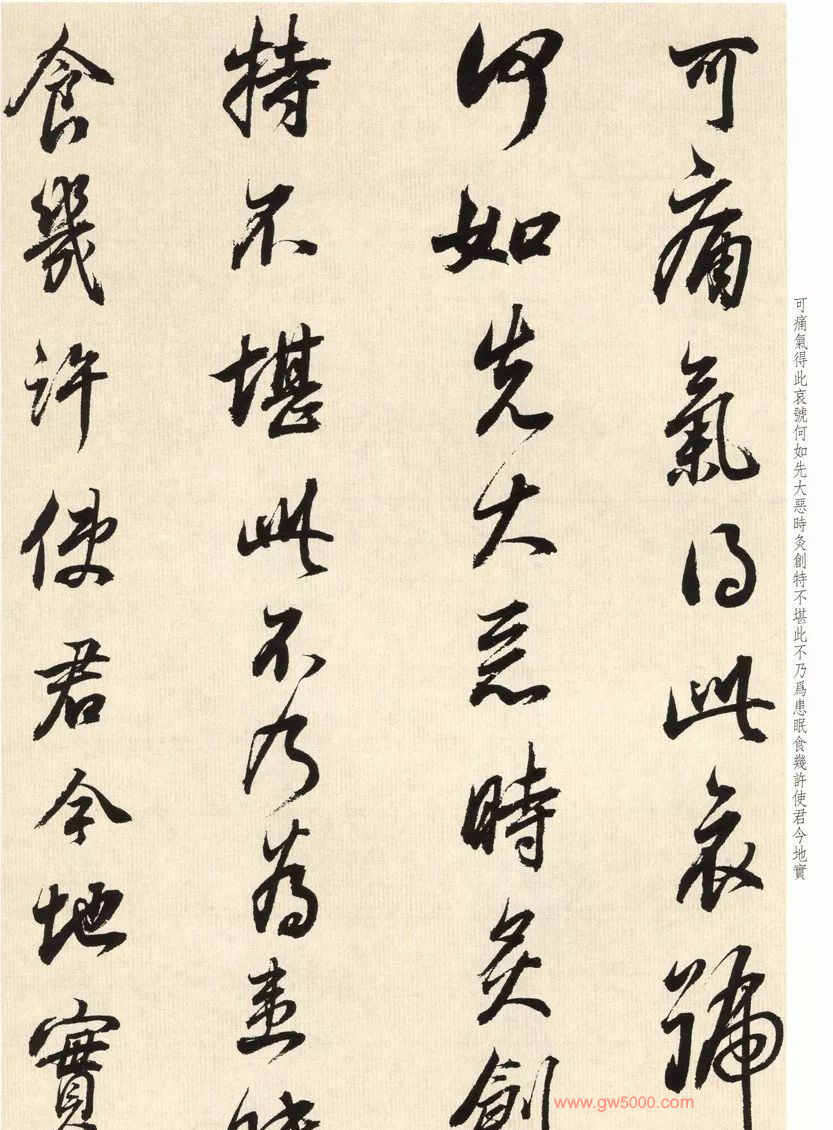 可痛氣得此哀號
何如先大惡時灸創
特不堪此不乃為患眠
食幾許使君今地實
可痛氣得此哀號何如先大惡時灸創特不堪此不乃爲患眠食幾許使君今地實
www.gw5000.com